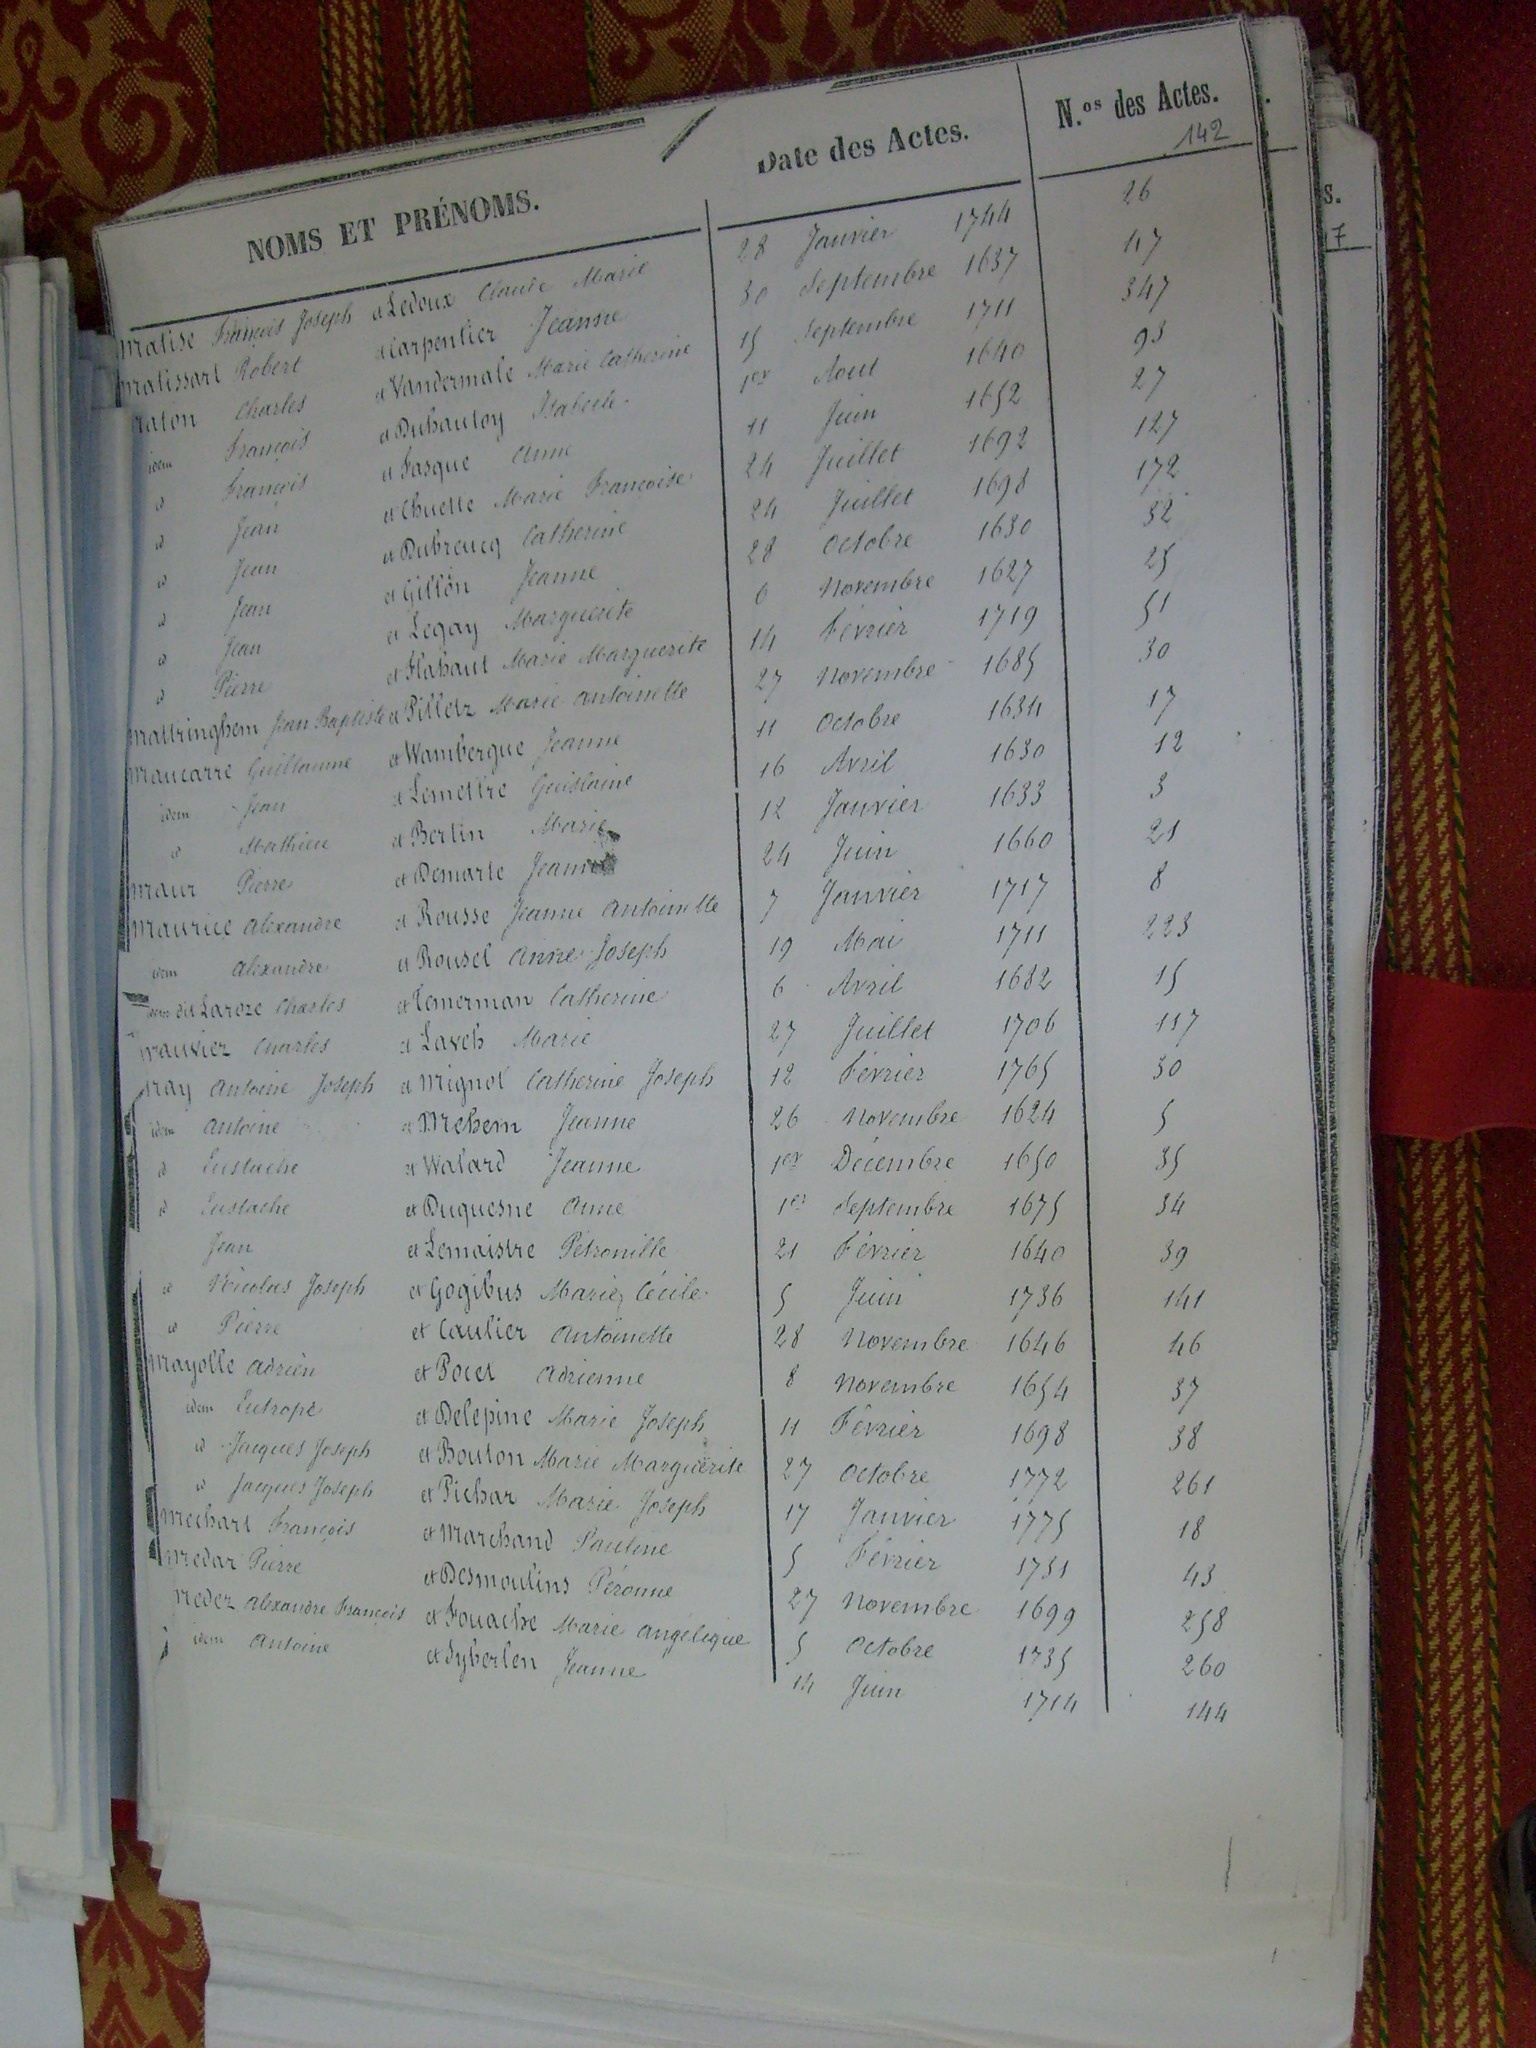 NOMS ET PRÉNOMS. Date des Actes. N.os des Actes.
142
Matise François Joseph et Ledoux Claude Marie 28 Janvier 1744 26
Matissart Robert et Carpentier Jeanne 30 Septembre 1637 117
Maton Charles et Vandermale Marie Catherine 15 Septembre 1711 347
idem François et Duhautoy Isabelle 1er Aout 1640 93
id François et Fasque Anne 11 Juin 1652 27
id Jean et Chuette Marie Françoise 24 Juillet 1692 127
id Jean et Dubreucq Catherine 24 Juillet 1698 172
id Jean et Gillon Jeanne 28 Octobre 1630 32
id Jean et Legay Marguerite 6 Novembre 1627 25
id Pierre et Flahaut Marie Marguerite 14 Février 1719 51
Mattringhem Jean Baptiste et Pilletz Marie Antoinette 27 Novembre 1685 30
Maucarre Guillaume et Wambergue Jeanne 11 Octobre 1634 17
idem Jean et Lemettre Guislaine 16 Avril 1630 12
id Mathieu et Bertin Marie 12 Janvier 1633 3
Maur Pierre et Demarle Jeanne 24 Juin 1660 21
Maurice Alexandre et Rousse Jeanne Antoinette 7 Janvier 1717 8
idem Alexandre et Rousel Anne Joseph 19 Mai 1711 223
idem dit Laroze Charles et Temerman Catherine 6 Avril 1682 15
Mauvier Charles et Laveh Marie 27 Juillet 1706 117
May Antoine Joseph et Mignot Catherine Joseph 12 Février 1765 30
idem Antoine et Mehem Jeanne 26 Novembre 1624 5
id Eustache et Walard Jeanne 1er Décembre 1650 35
id Eustache et Duquesne Anne 1er Septembre 1675 34
Jean et Lemaistre Petronille 21 Février 1640 39
id Nicolas Joseph et Gogibus Marie Cécile 5 Juin 1736 141
id Pierre et Caulier Antoinette 28 Novembre 1646 46
Mayolle Adrien et Pocet Adrienne 8 Novembre 1654 37
idem Eutrope et Delepine Marie Joseph 11 Février 1698 38
id Jacques Joseph et Bouton Marie Marguerite 27 Octobre 1772 261
id Jacques Joseph et Pichar Marie Joseph 17 Janvier 1775 18
Mechart François et Marchand Pauline 5 Février 1731 43
Medar Pierre et Desmoulins Péronne 27 Novembre 1699 258
Medez Alexandre François et Fouache Marie Angélique 5 Octobre 1735 260
idem Antoine et Syberlen Jeanne 14 Juin 1714 144